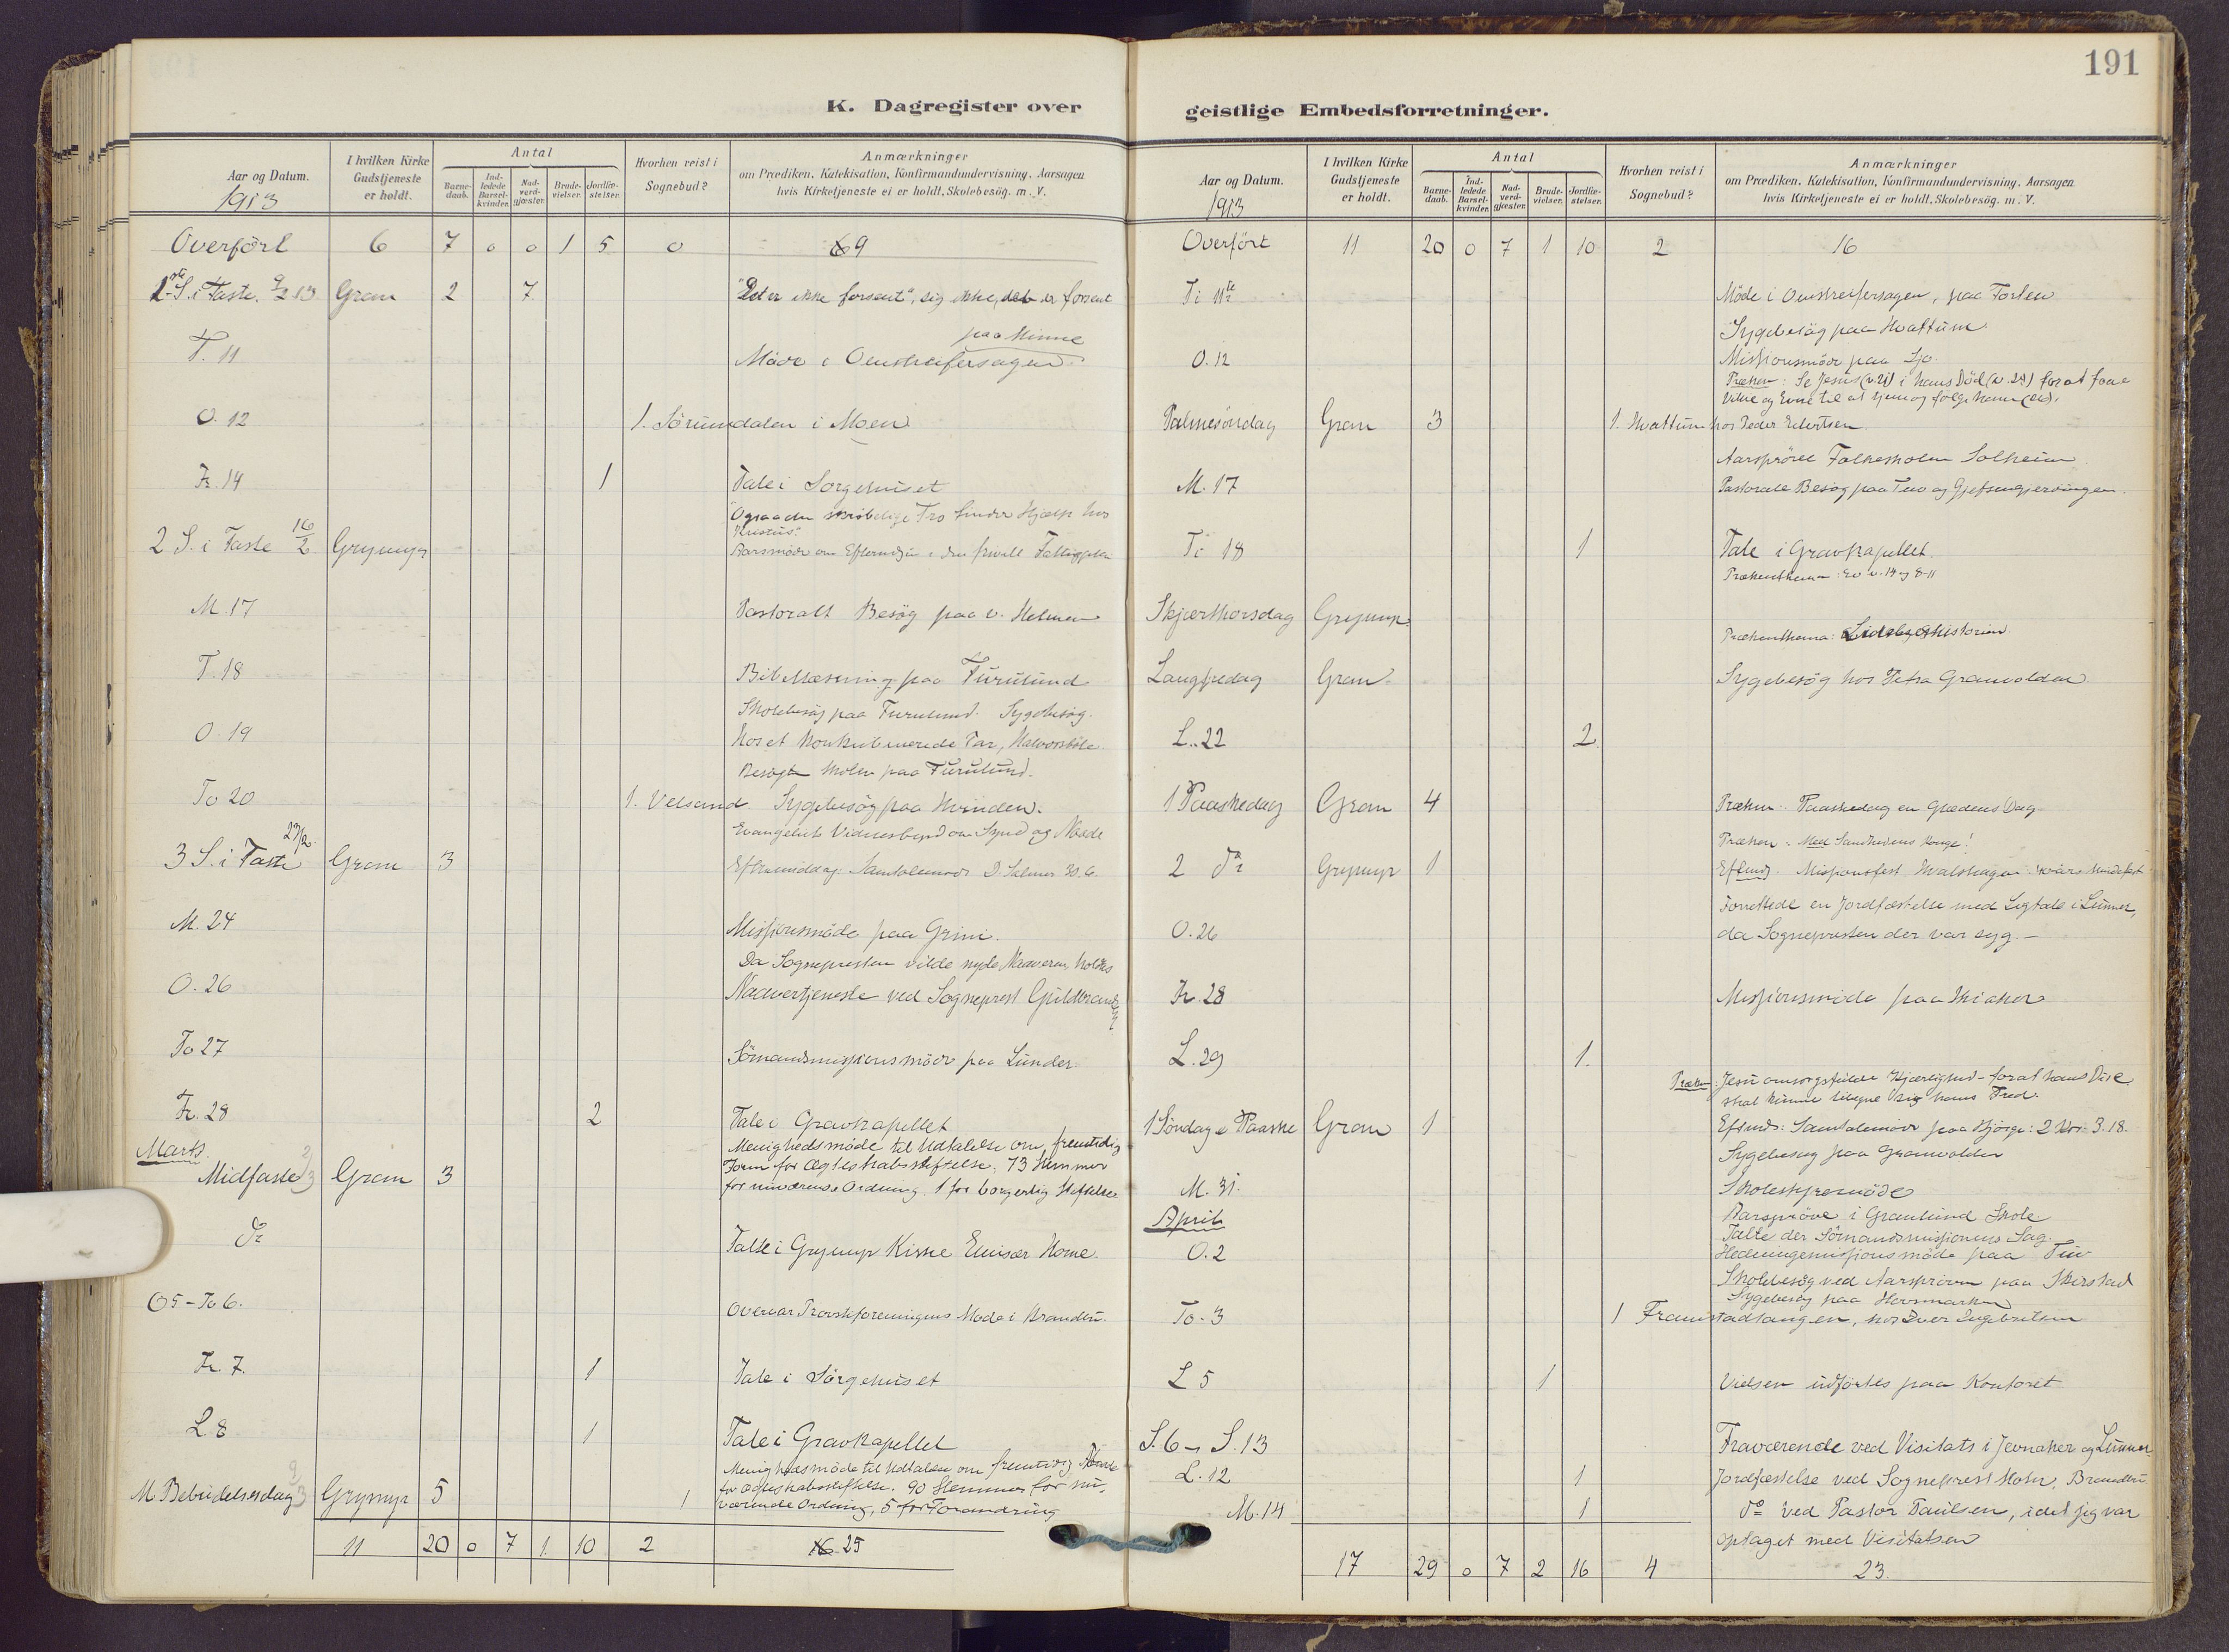 191
K. Dagregister over
Aar og Datum.
1913
I hvilken Kirke Gudstjeneste er holdt.
Antal
Barnedaab.
Indledede Barselkvinder.
Nadverdgjæster.
Brudevielser.
Jordfæstelser.
Hvorhen reist i Sognebud?
Anmærkninger
om Prædiken, Katekisation, Konfirmandundervisning, Aarsagen
hvis Kirketjeneste ei er holdt, Skolebesøg. m. V.
Overført 6 7 0 0 1 5 0 9
S. i Faste. 9/2 13 Gran 2 7 "Det er ikke forsent", sig ikke, det er forsent
paa Minne
T. 11 Møde i Omstreifersagen
O. 12 1. Sørumdalen i Moen
Fr. 14 1 Tale i Sørgehuset
Ogsaa den skrøbelige Tro finder Hjælp hos
Kristus.
2 S. i Faste 16/2 Grymyr Aarsmøde om Eftermdg. i den private Fattigpleie
M. 17 Pastoralt Besøg paa v. Helmen
T. 18 Bibellæsning paa Furulund
Skolebesøg paa Furulund. Sygebesøg.
O. 19 Hos et konkubinerende Par,
Besøgte Skolen paa Furulund.
To 20 1. Velsand Sygebesøg paa Hvinden.
Evangeliets Vidnesbyrd om Synd og Naade
3 S. i Faste 23/2 Gran 3 Eftermiddag: Samtalemøde
M. 24 Missionsmøde paa Grini.
Da Sognepresten vilde nyde Nadveren, holdtes
O. 26 Nadvertjeneste ved Sogneprest Guldbrandsen
To 27 Sømandsmissionsmøde paa Lunder
Fr. 28 2 Tale i Gravkapellet
Marts. Menighedsmøde til Udtalelse om fremtidig
Midfaste 2/3 Gran 3 Form for Ægteskabsstiftelse. 73 Stemmer
for nuværende Ordning. 1 for borgerlig Stiftelse
do Talte i Grymyr Kirke Emisær Horne.
O 5 - To 6. Overvar Provstiforeningens Møde i Brandbu.
Fr. 7. 1 Tale i Sørgehuset
L. 8 1 Tale i Gravkapellet
Menighedsmøde til Udtalelse om fremtidig
M Bebudelsesdag 9/3 Grymyr 5 1 for Ægteskabsstiftelse. 90 Stemmer for nu-
værende Ordning, 5 for Forandring
11 20 0 7 1 10 2 25
geistlige Embedsforretninger.
Aar og Datum.
1913
I hvilken Kirke Gudstjeneste er holdt.
Antal
Barnedaab.
Indledede Barselkvinder.
Nadverdgjæster.
Brudevielser.
Jordfæstelser.
Hvorhen reist i Sognebud?
Anmærkninger
om Prædiken, Katekisation, Konfirmandundervisning, Aarsagen
hvis Kirketjeneste ei er holdt, Skolebesøg. m. V.
Overført 11 20 0 7 1 10 2 16
Ti 11te Møde i Omstreifersagen, paa Forten
Sygebesøg paa Hvattum
O. 12 Missionsmøde paa Sjo.
Præken: Se Jesus (v. 21) i hans Død (v. 24) for at faae
Vilje og Evne til at tjene og følge ham
Palmesøndag Gran 3 1. Hvattum hos Peder Eilertsen
Aarsprøve Folkeskolen Solheim
M. 17 Pastorale Besøg paa Tuv og Gjefsengjerdingen
Ti 18 1 Tale i Gravkapellet
Prækenthema: Ev v. 14 og 8-11
Skjærthorsdag Grymyr
Prækenthema: Lidelseshistorien
Langfredag Gran Sygebesøg hos Petra Granvolden
L. 22 2
1 Paaskedag Gran 4 Præken: Paaskedag en Glædens Dag
Præken: Med Sandhedens Konge!
2 do Grymyr 1 Eftmdg. Missionsfest
Forrettede en Jordfæstelse med Ligtale i Lunner,
O. 26 da Sognepresten der var syg. —
Fr. 28 Missionsmøde paa Skiaker
L. 29 1.
Præken: Jesu omsorgsfulde Kjærlighed - for at hans Disc
skal kunne tilegne sig hans Fred.
1 Søndag e Paaske Gran 1 Eftmdg: Samtalemøde paa Hjørge: 2 Kor. 3.18.
Sygebesøg paa Granvolden
M. 31. Skolestyremøde
April Aarsprøve i Granlund Skole.
Talte der Sømandsmissionens Sag.
O. 2 Hedningemissionsmøde paa Tuv
Skolebesøg ved Aarsprøven paa Skirstad
Sygebesøg paa Hovsmarken
To. 3 1 Framstadtangen, hos Iver Engebretsen
L 5 1 Vielsen udførtes paa Kontoret
S. 6 - S. 13 Fraværende ved Visitats i Jevnaker og Lunner
L. 12 1 Jordfæstelse ved Sogneprest Holm, Brandbu
M. 14 1 do ved Pastor Paulsen, idet jeg var
optaget med Visitatsen
17 29 0 7 2 16 4 23